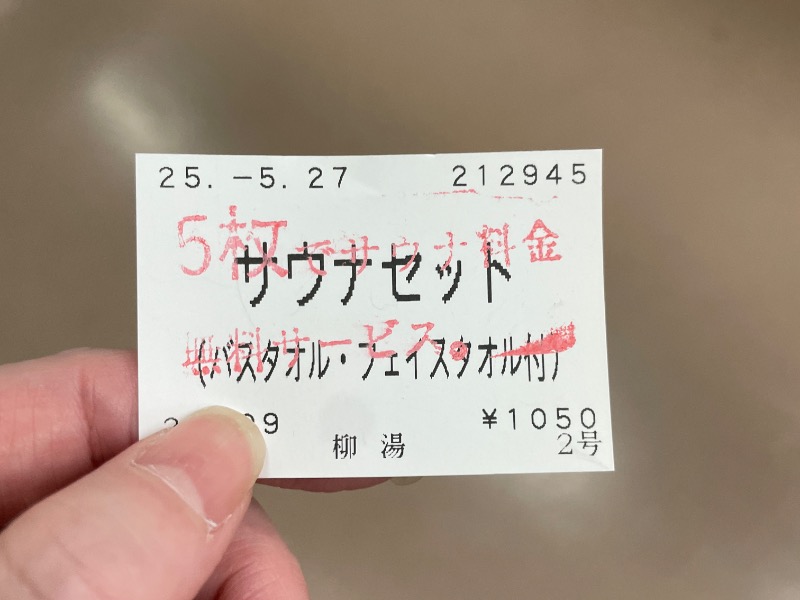 25.-5.27 212945
5枚でサウナ料金
サウナセット
無料サービス。
(バスタオル・フェイスタオル付)
¥1050
柳湯 2号